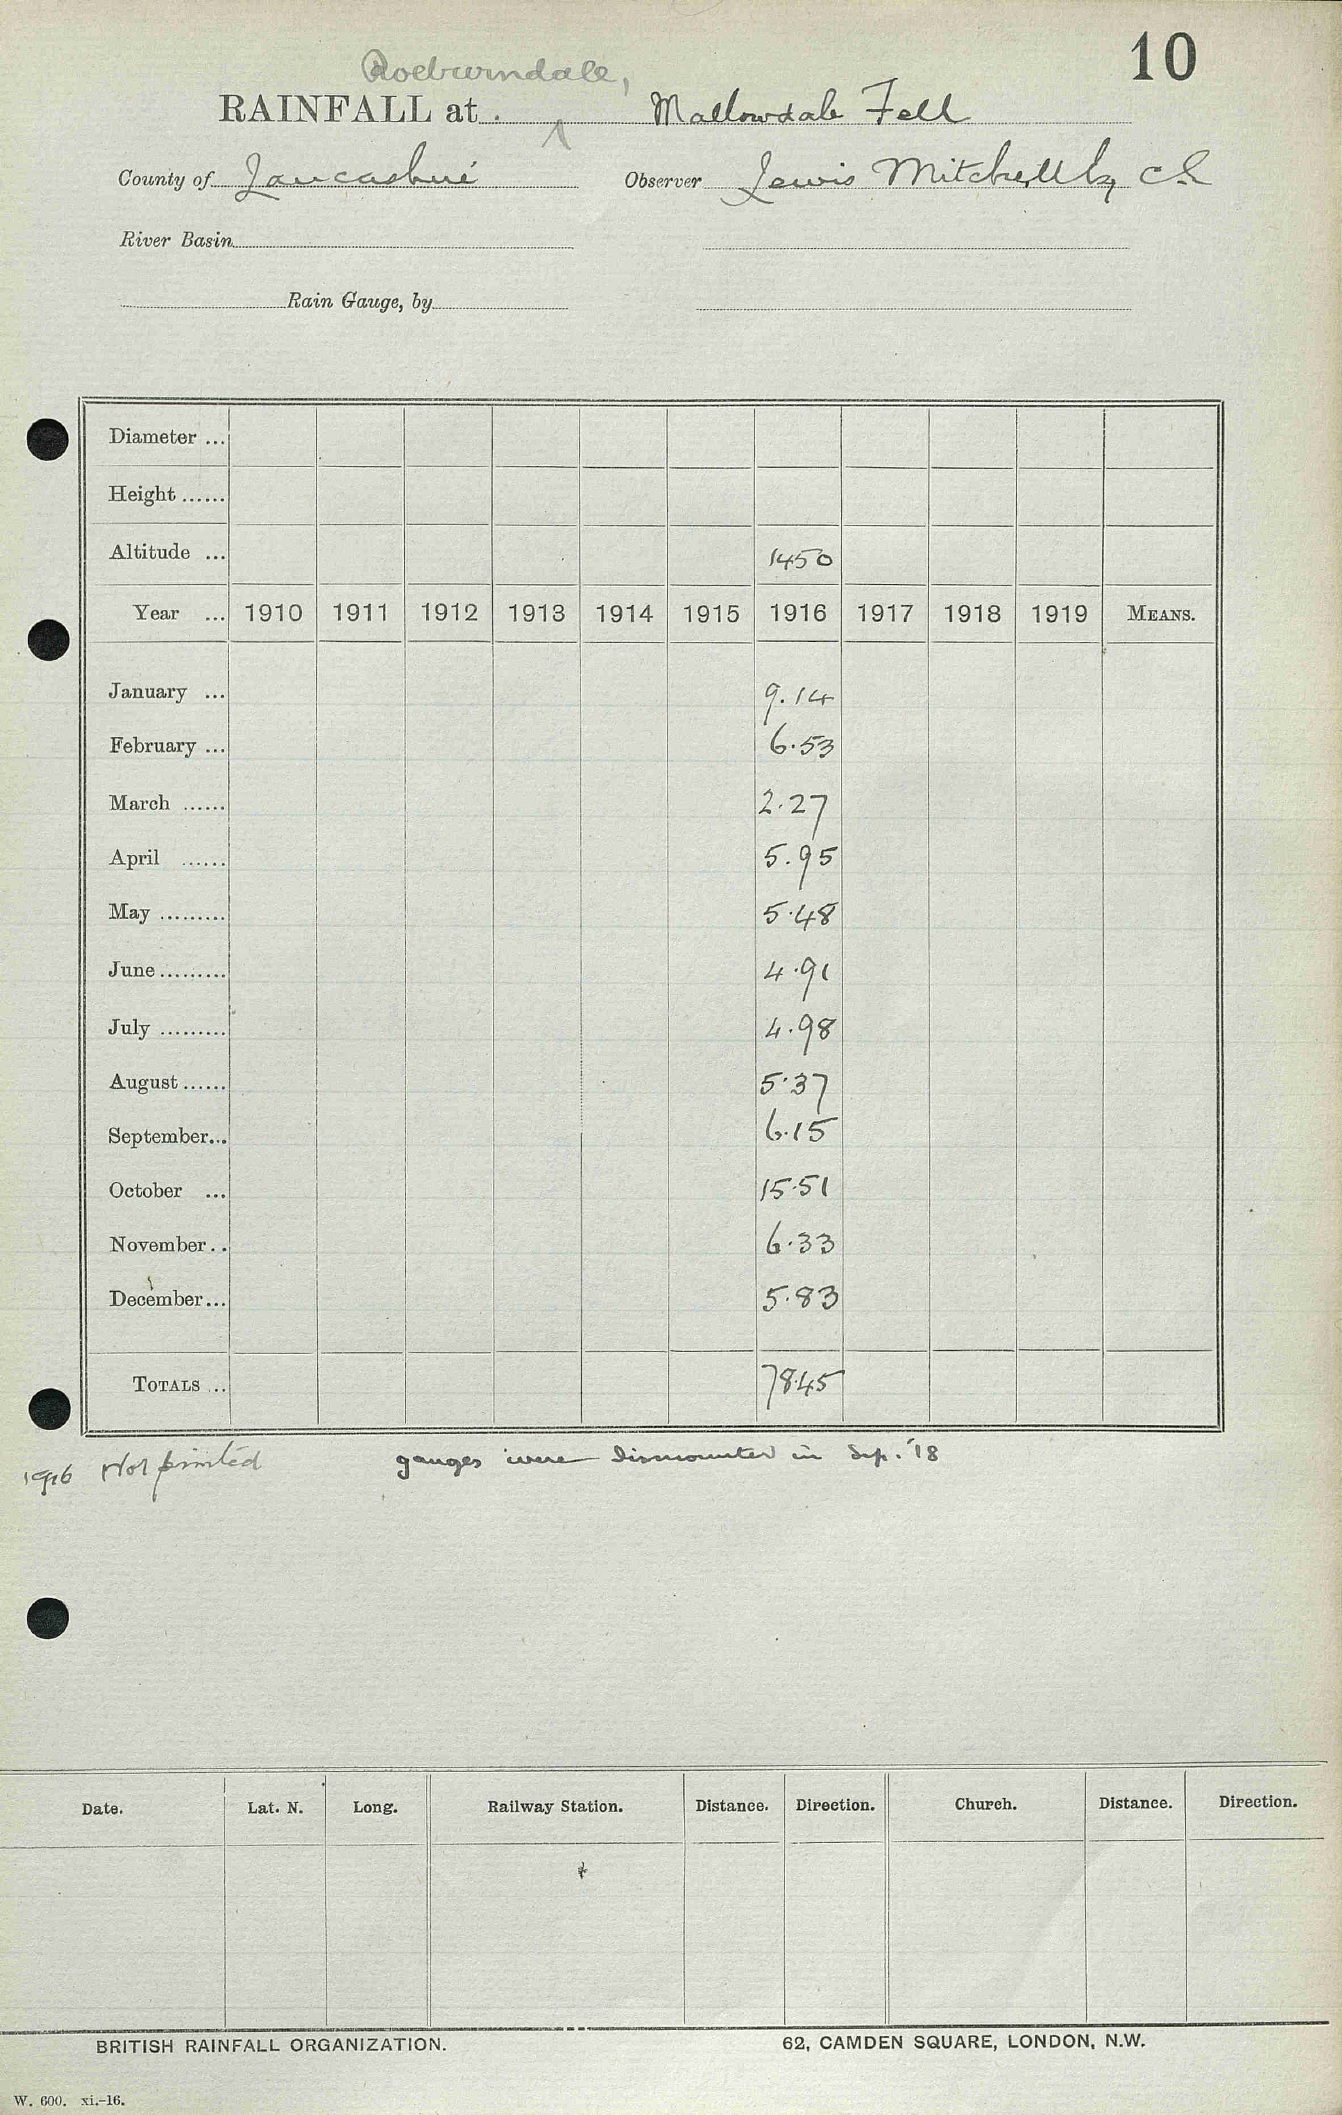 10
Roeburndale,
RAINFALL at Mallowdale Fell
County of Lancashire Observer Lewis Mitchell Esq CE
River Basin
Rain Gauge, by
Diameter ...
Height ......
Altitude ... 1450
Year ... 1910 1911 1912 1913 1914 1915 1916 1917 1918 1919 MEANS.
January ... 9.14
February ... 6.53
March ...... 2.27
April ...... 5.95
May ......... 5.48
June ......... 4.91
July ......... 4.98
August ...... 5.37
September... 6.15
October ... 15.51
November .. 6.33
December... 5.83
TOTALS ... 78.45
1916 Not printed gauges were dismounted in Sep. '18
Date. Lat. N. Long. Railway Station. Distance. Direction. Church. Distance. Direction.
BRITISH RAINFALL ORGANIZATION. 62, CAMDEN SQUARE, LONDON, N.W.
W. 600. xi.-16.